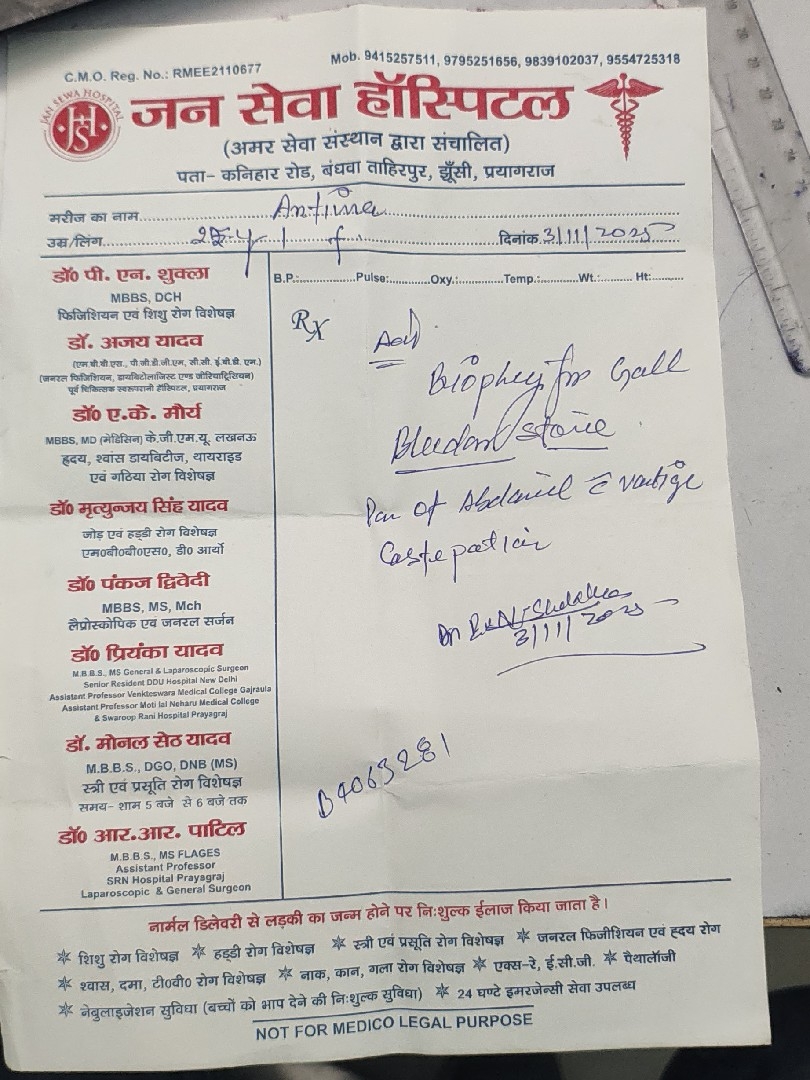 C.M.O. Reg. No.: RMEE2110677
Mob. 9415257511, 9795251656, 9839102037, 9554725318
JAN SEWA HOSPITAL
JHS
जन सेवा हॉस्पिटल
(अमर सेवा संस्थान द्वारा संचालित)
पता- कनिहार रोड, बंधवा ताहिरपुर, झूँसी, प्रयागराज
मरीज का नाम Antima
उम्र/लिंग f दिनांक 3/11/2025
B.P.: Pulse: Oxy.: Temp.: Wt.: Ht:
डॉ० पी. एन. शुक्ला
MBBS, DCH
फिजिशियन एवं शिशु रोग विशेषज्ञ
डॉ. अजय यादव
(एम.बी.बी.एस., पी.जी.डी.जी.एम, सी.सी. ई.बी.डी. एम.)
(जनरल फिजिशियन, डायबिटोलाजिस्ट एण्ड जीरियाट्रिसियन)
पूर्व चिकित्सक स्वरूपरानी हॉस्पिटल, प्रयागराज
डॉ० ए.के. मौर्य
MBBS, MD (मेडिसिन) के.जी.एम.यू. लखनऊ
हृदय, श्वांस डायबिटीज, थायराइड
एवं गठिया रोग विशेषज्ञ
डॉ० मृत्युन्जय सिंह यादव
जोड़ एवं हड्डी रोग विशेषज्ञ
एम०बी०बी०एस०, डी० आर्थो
डॉ० पंकज द्विवेदी
MBBS, MS, Mch
लैप्रोस्कोपिक एवं जनरल सर्जन
डॉ० प्रियंका यादव
M.B.B.S., MS General & Laparoscopic Surgeon
Senior Resident DDU Hospital New Delhi
Assistant Professor Venkteswara Medical College Gajraula
Assistant Professor Moti lal Neharu Medical College
& Swaroop Rani Hospital Prayagraj
डॉ. मोनल सेठ यादव
M.B.B.S., DGO, DNB (MS)
स्त्री एवं प्रसूति रोग विशेषज्ञ
समय- शाम 5 बजे से 6 बजे तक
डॉ० आर.आर. पाटिल
M.B.B.S., MS FLAGES
Assistant Professor
SRN Hospital Prayagraj
Laparoscopic & General Surgeon
Rx
Adv
for Gall
stone
Pain Of
Dr
3/11/2025
B4063281
नार्मल डिलेवरी से लड़की का जन्म होने पर नि:शुल्क ईलाज किया जाता है।
शिशु रोग विशेषज्ञ हड्डी रोग विशेषज्ञ स्त्री एवं प्रसूति रोग विशेषज्ञ जनरल फिजीशियन एवं ह्दय रोग
श्वास, दमा, टी०वी० रोग विशेषज्ञ नाक, कान, गला रोग विशेषज्ञ एक्स-रे, ई.सी.जी. पैथालॉजी
नेबुलाइजेशन सुविधा (बच्चों को भाप देने की नि:शुल्क सुविधा) 24 घण्टे इमरजेन्सी सेवा उपलब्ध
NOT FOR MEDICO LEGAL PURPOSE